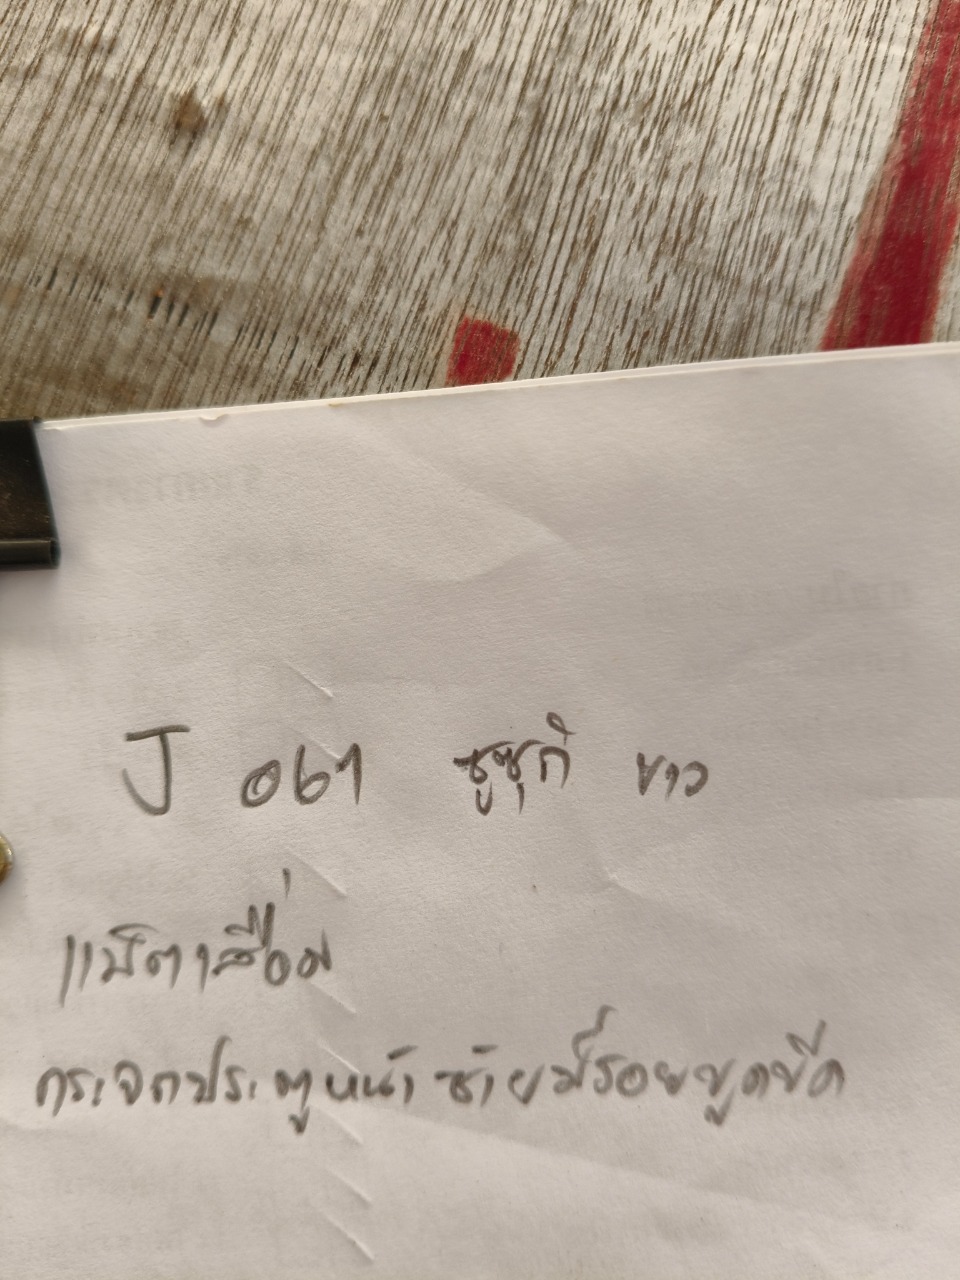 J 061 ซูซุกิ ขาว
แบ๊ตเสื่อม
กระจกประตูหน้าซ้ายมีรอยขูดขีด